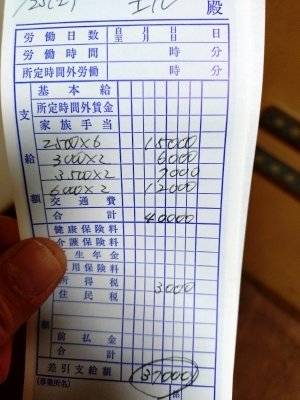 殿
労働日数 自 至 月 月 日 日 日
労働時間 時 分
所定時間外労働 時 分
基本給
所定時間外賃金
家族手当
2500×6 15000
3000×2 6000
3500×2 7000
6000×2 12000
交通費
合計 40000
支給額
健康保険料
介護保険料
生年金
用保険料
所得税 3000
住民税
額
前払金
合計
差引支給額 37000
(事業所名) 係